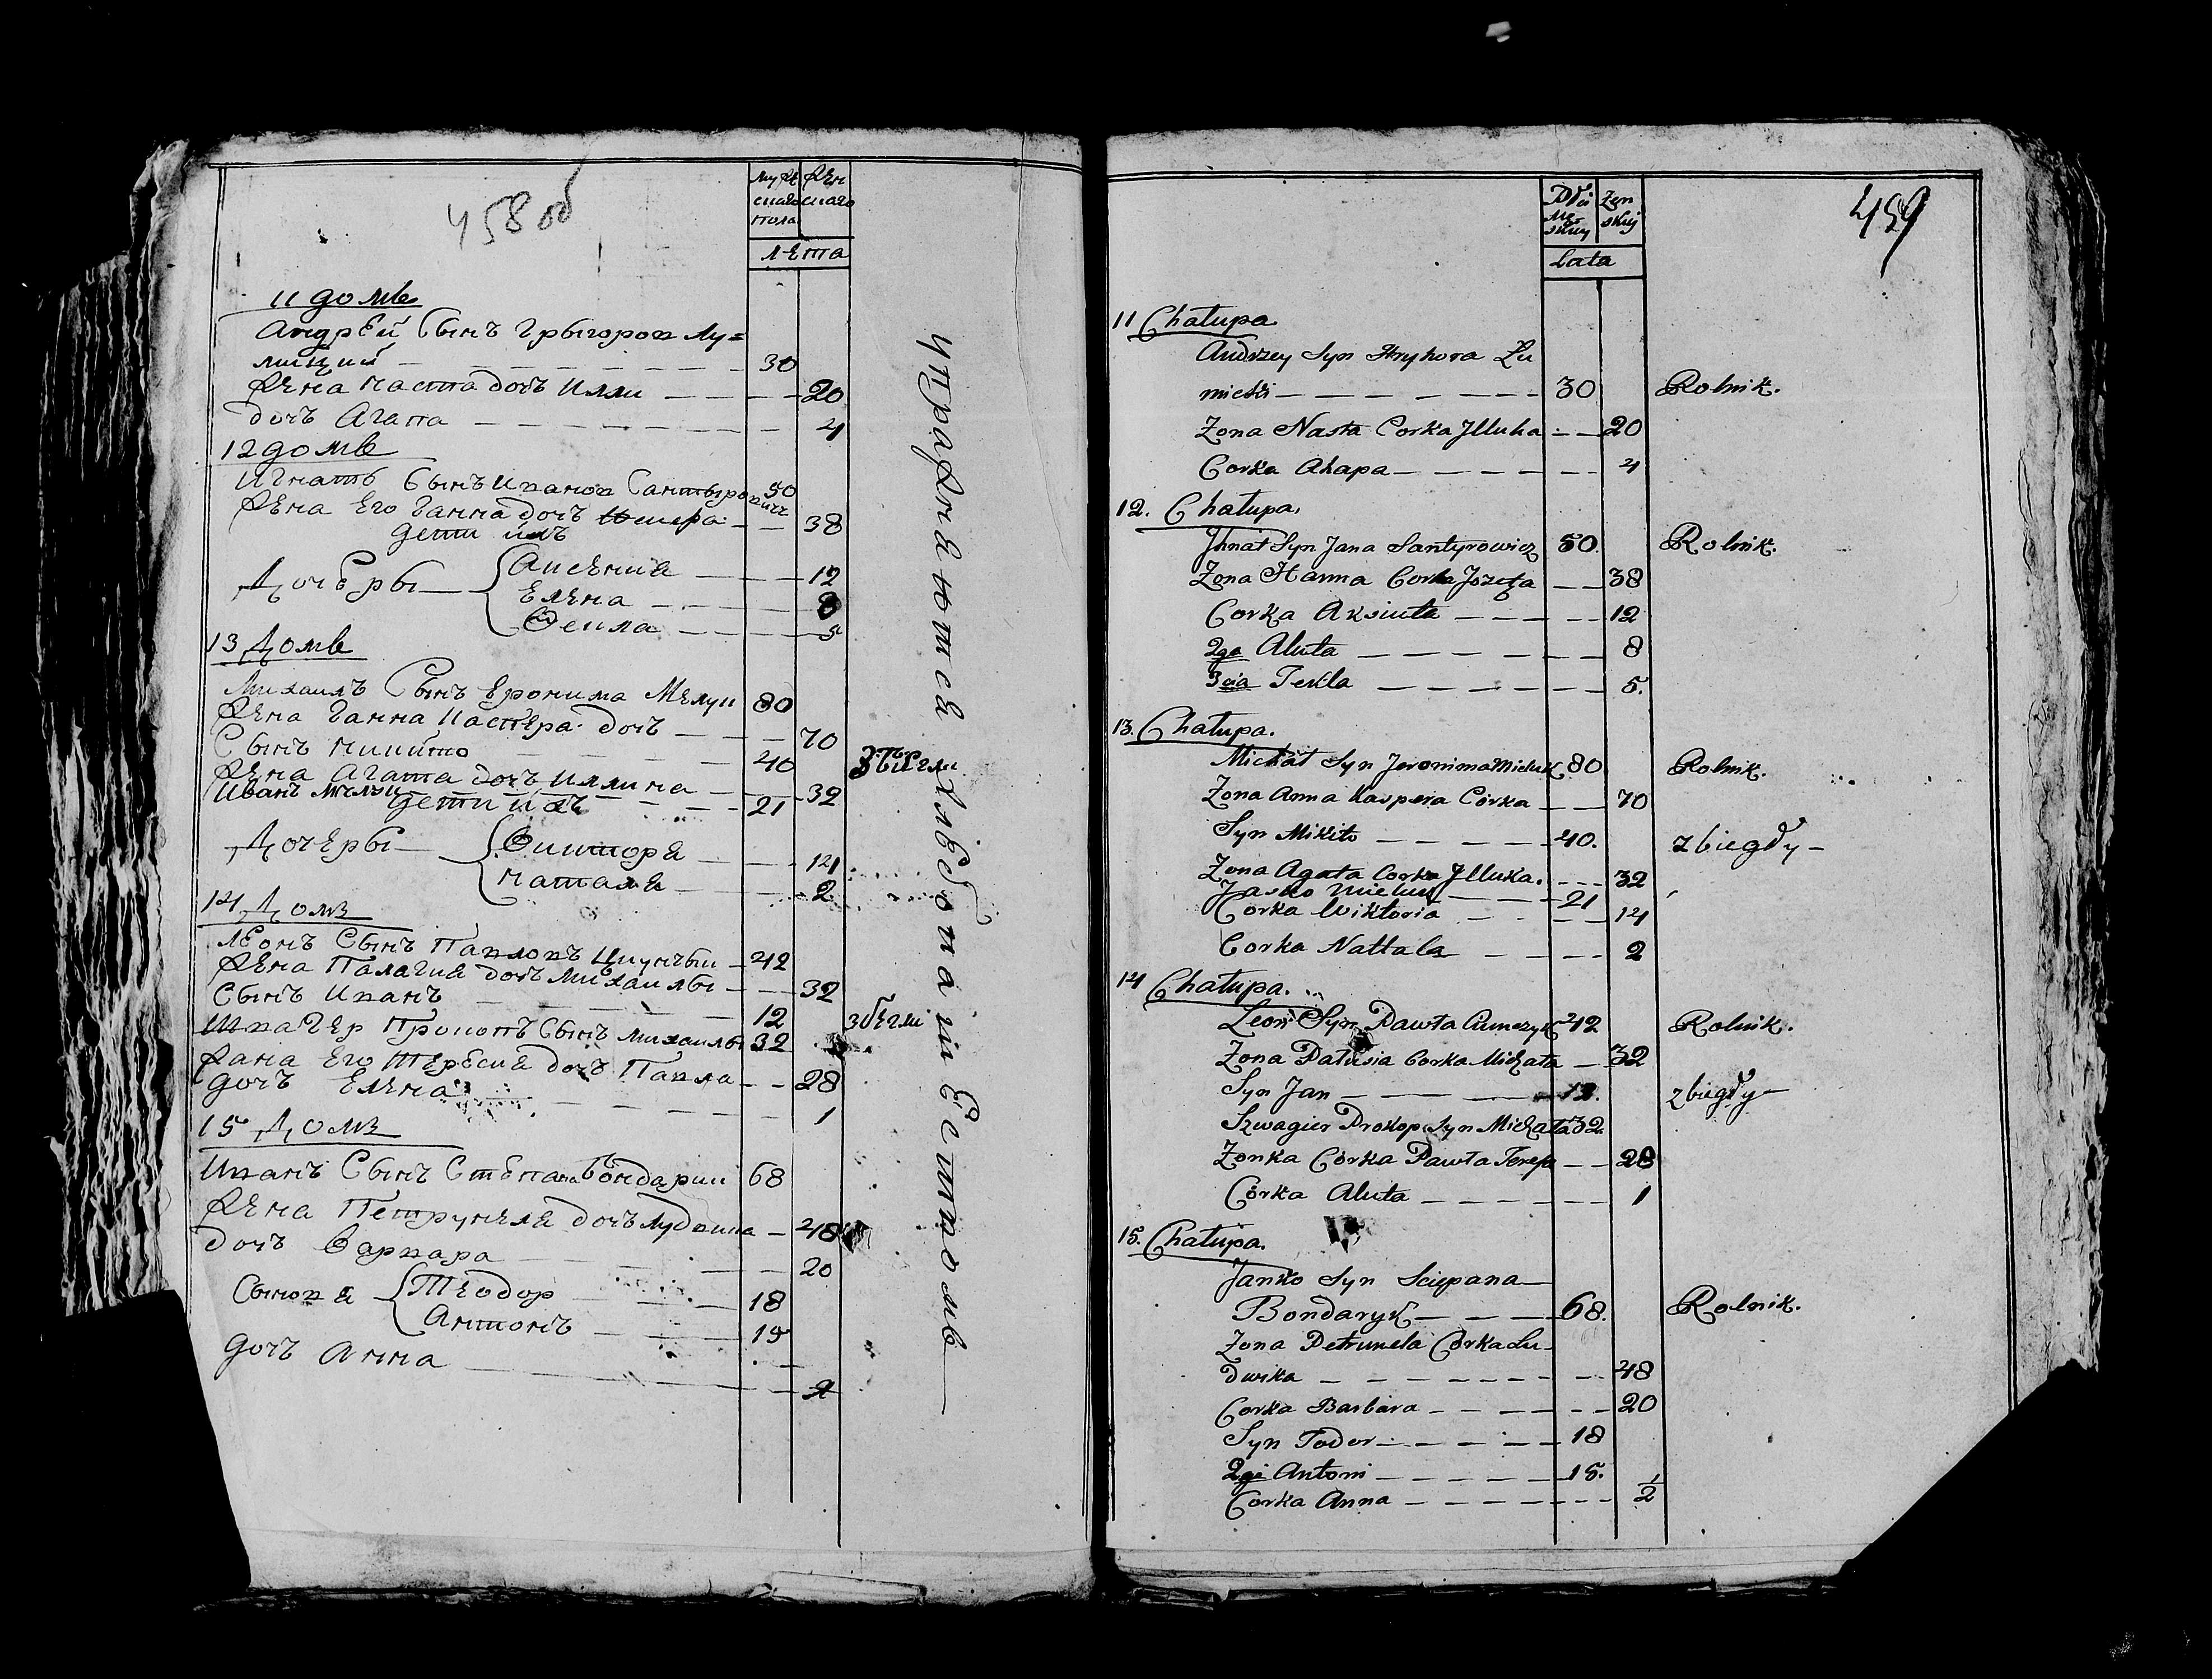 458 об
муже
скаго
пола
жен
скаго
лета
11 домъ
Андрей Сынъ Грыгоров Лу=
мицкий 30
Жена Наста дочъ Илли 20
дочъ Агапа 4
12 домъ
Игнатъ Сынъ Иванов Сантырович 50
Жена Его Ганна дочъ 38
дети ихъ
Дочеры
Аксения 12
Елена 8
Фекла 5
13 домъ
Михаилъ Сынъ Еронима Мелук 80
Жена Ганна Каспера дочъ 70
Сынъ Микито 40 збегли
Жена Агата дочъ Иллина 32
Иванъ Мелук 21
дети ихъ
Дочеры
Виктора 14
Наталя 2
14 Домъ
Леонъ Сынъ Павловъ 42
Жена Палагия дочъ Михаилы 32
Сынъ Иванъ 12 збегли
Швагер Прокопъ Сынъ Михаилы 32
Жана Его Тересия дочъ Павла 28
дочъ Елена 1
15 Домъ
Иванъ Сынъ Степана Бондарик 68
Жена Петрунеля дочъ Лудвика 48
дочъ Варвара 20
Сыновя
Теодор 18
Антонъ 15
дочъ Анна
упражняются хлебопашеством
459
Płci
mę
skiey
Zen
skiej
Lata
11 Chałupa
Andrzey Syn Hryhora Łu
micki 30 Rolnik.
Zona Nasta Corka Jlluka 20
Corka Ahapa 4
12. Chałupa.
Jhnat Syn Jana Santyrowicz 50. Rolnik.
Zona Hanna Corka Jozefa 38
Corka Aksiuta 12
2ga Aluta 8
3cia Tekla 5.
13. Chałupa.
Michał Syn Jeronima Mieluk 80 Rolnik.
Zona Anna Kaspera Córka 70
Syn Mikito 40. zbiegły
Zona Agata Corka Jlluka. 32
Jasko Mieluk 21
Corka Wiktoria 14
Corka Nattala 2
14 Chałupa.
Leon Syn Pawła 42 Rolnik.
Zona Pałusia Corka Michała 32
Syn Jan 12. zbiegły
Szwagier Prokop Syn Michała 32.
Zonka Córka Pawła 28
Córka Aluta 1
15. Chałupa.
Janko Syn Sciepana
Bondaryk 68. Rolnik.
Zona Petrunela Córka Lu-
dwika 48
Corka Barbara 20
Syn Todor 18
2gi Antoni 15.
Corka Anna 1/2